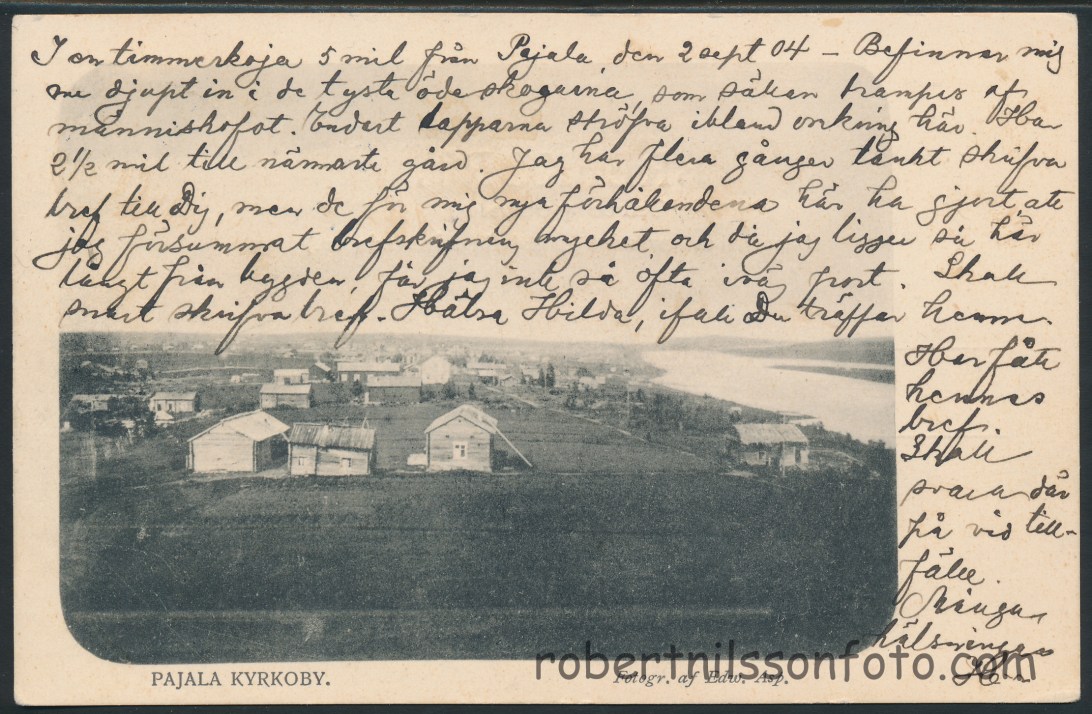 I en timmerkoja 5 mil från Pajala, den 2 sept 04 – Befinner mig
nu djupt in i de tysta ödeskogarna, som sällan trampas af
människofot. Endast lapparna ströfva ibland omkring här. Har
2 1/2 mil till närmaste gård. Jag har flera gånger tänkt skrifva
bref till Dig, men de för mig nya förhållandena här ha gjort att
jag försummat brefskrifning mycket och då jag ligger så här
långt från bygden, får jag inte så ofta iväg post. Skall
snart skrifva bref. Hälsa Hilda, ifall Du träffar henne.
Har fått
hennes
bref.
Skall
svara där
på vid till-
fälle.
Många
hälsningar
PAJALA KYRKOBY.
Fotogr. af Edw. Asp.
robertnilssonfoto.com